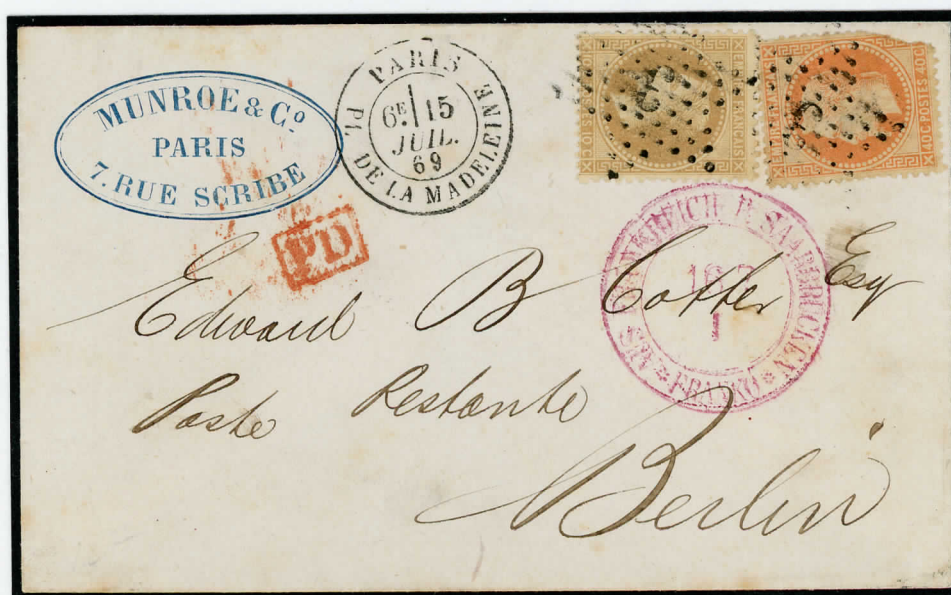 MUNROE & Cº
PARIS
7. RUE SCRIBE
PARIS
6E 15
JUIL.
69
Pl. DE LA MADELEINE
PD
EMPIRE FRANÇAIS
40C POSTES 40C
AUS FRANKREICH P. SAARBRÜCKEN
16 7
1
* FRANKO *
Edward B Cotter Esq
Poste Restante
Berlin